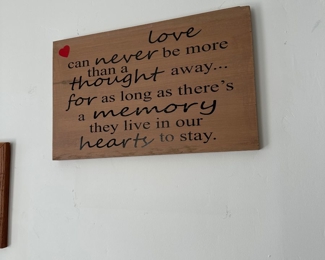 love
can never be more
than a
thought away...
for as long as there's
a memory
they live in our
hearts to stay.